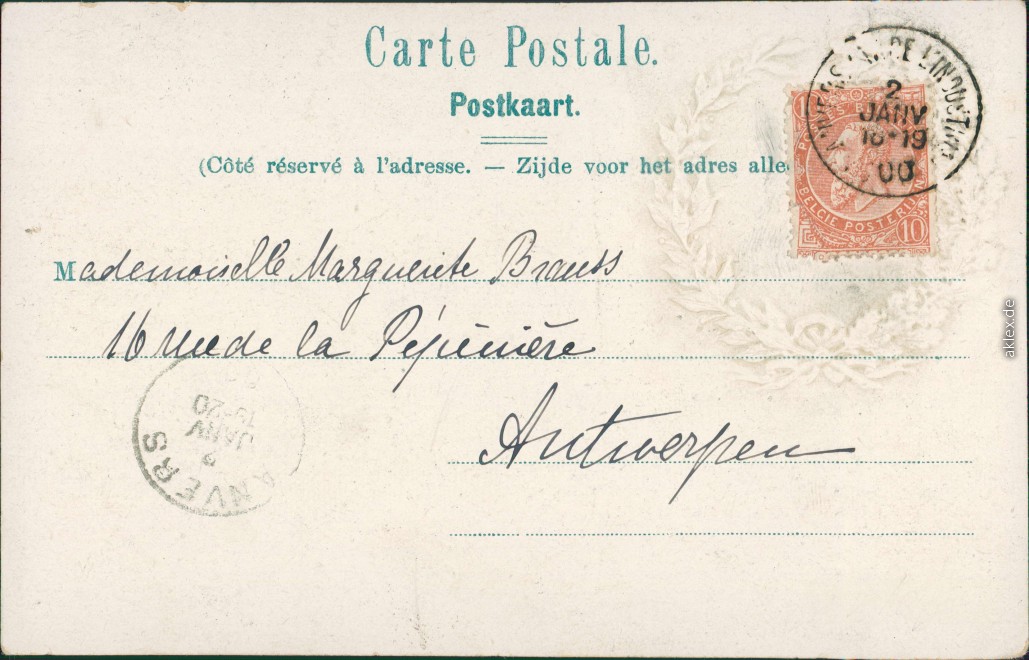 Carte Postale.
Postkaart.
(Côté réservé à l'adresse. — Zijde voor het adres alle
Mademoiselle Marguerite Brauss
16 rue de la Pépinière
Antwerpen
2
JANV
18-19
00
10
BELGIE POSTERIJEN
ANVERS
2
JANV
19-20
aklex.de